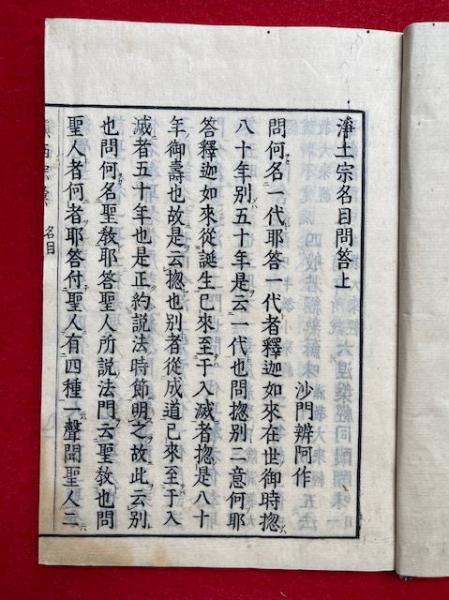 淨土宗名目問答上
沙門辨阿作
問何名一代耶答一代者釋迦如來在世御時揔
八十年別五十年是云一代也問揔別二意何耶
答釋迦如來從誕生已來至于入滅者揔是八十
年御壽也故是云揔也別者從成道已來至于入
滅者五十年也是正約說法時節明之故此云別
也問何名聖敎耶答聖人所說法門云聖敎也問
聖人者何者耶答付聖人有四種一聲聞聖人二
名目